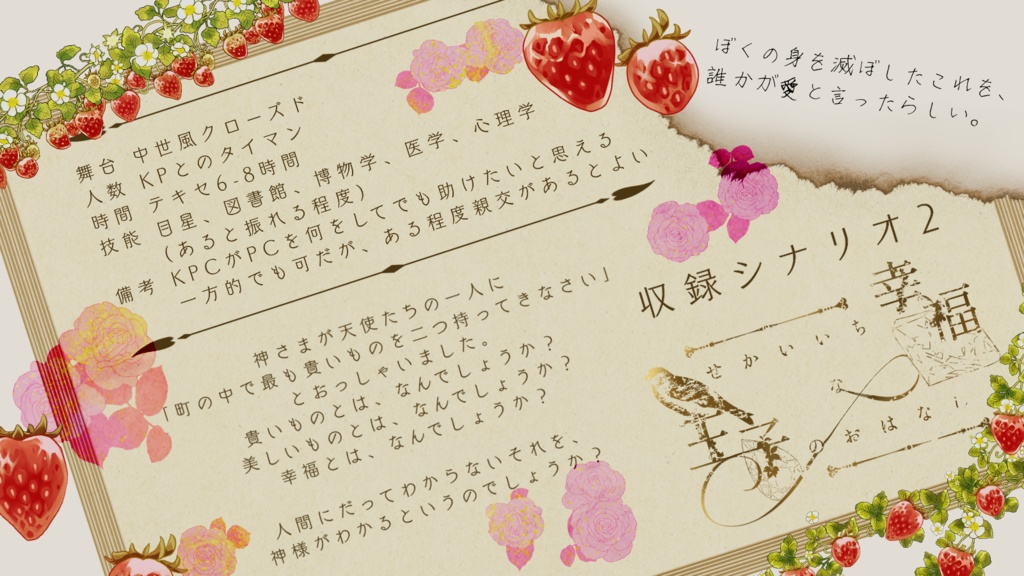 ぼくの身を滅ぼしたこれを、
誰かが愛と言ったらしい。
舞台 中世風クローズド
人数 KPとのタイマン
時間 テキセ6-8時間
技能 目星、図書館、博物学、医学、心理学
（あると振れる程度）
備考 KPCがPCを何をしてでも助けたいと思える
一方的でも可だが、ある程度親交があるとよい
神さまが天使たちの一人に
「町の中で最も貴いものを二つ持ってきなさい」
とおっしゃいました。
貴いものとは、なんでしょうか？
美しいものとは、なんでしょうか？
幸福とは、なんでしょうか？
人間にだってわからないそれを、
神様がわかるというのでしょうか？
収録シナリオ2
せかいいち
幸福
な
王子
のおはなし